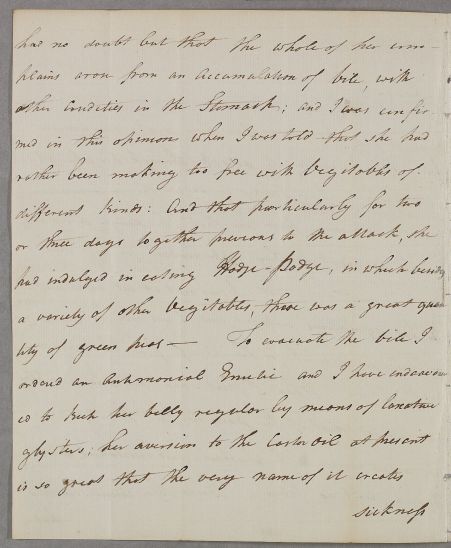 had no doubt but that the whole of her com-
plains arose from an accumulation of bile, with
other crudities in the Stomach; and I was confir
med in this opinion when I was told that she had
rather been making too free with Vegitables of
different kinds: And that particularly for two
or three days together previous to the attack, she
had indulged in eating Hodge Podge, in which besides
a variety of other Vegitables, there was a great quan
tity of green peas — To evacuate the bile I
ordered an Antimonial Emetic and I have endeavour
ed to keep her belly regular by means of laxative
glysters; her aversion to the Castor oil at present
is so great that the very name of it creates
sickness